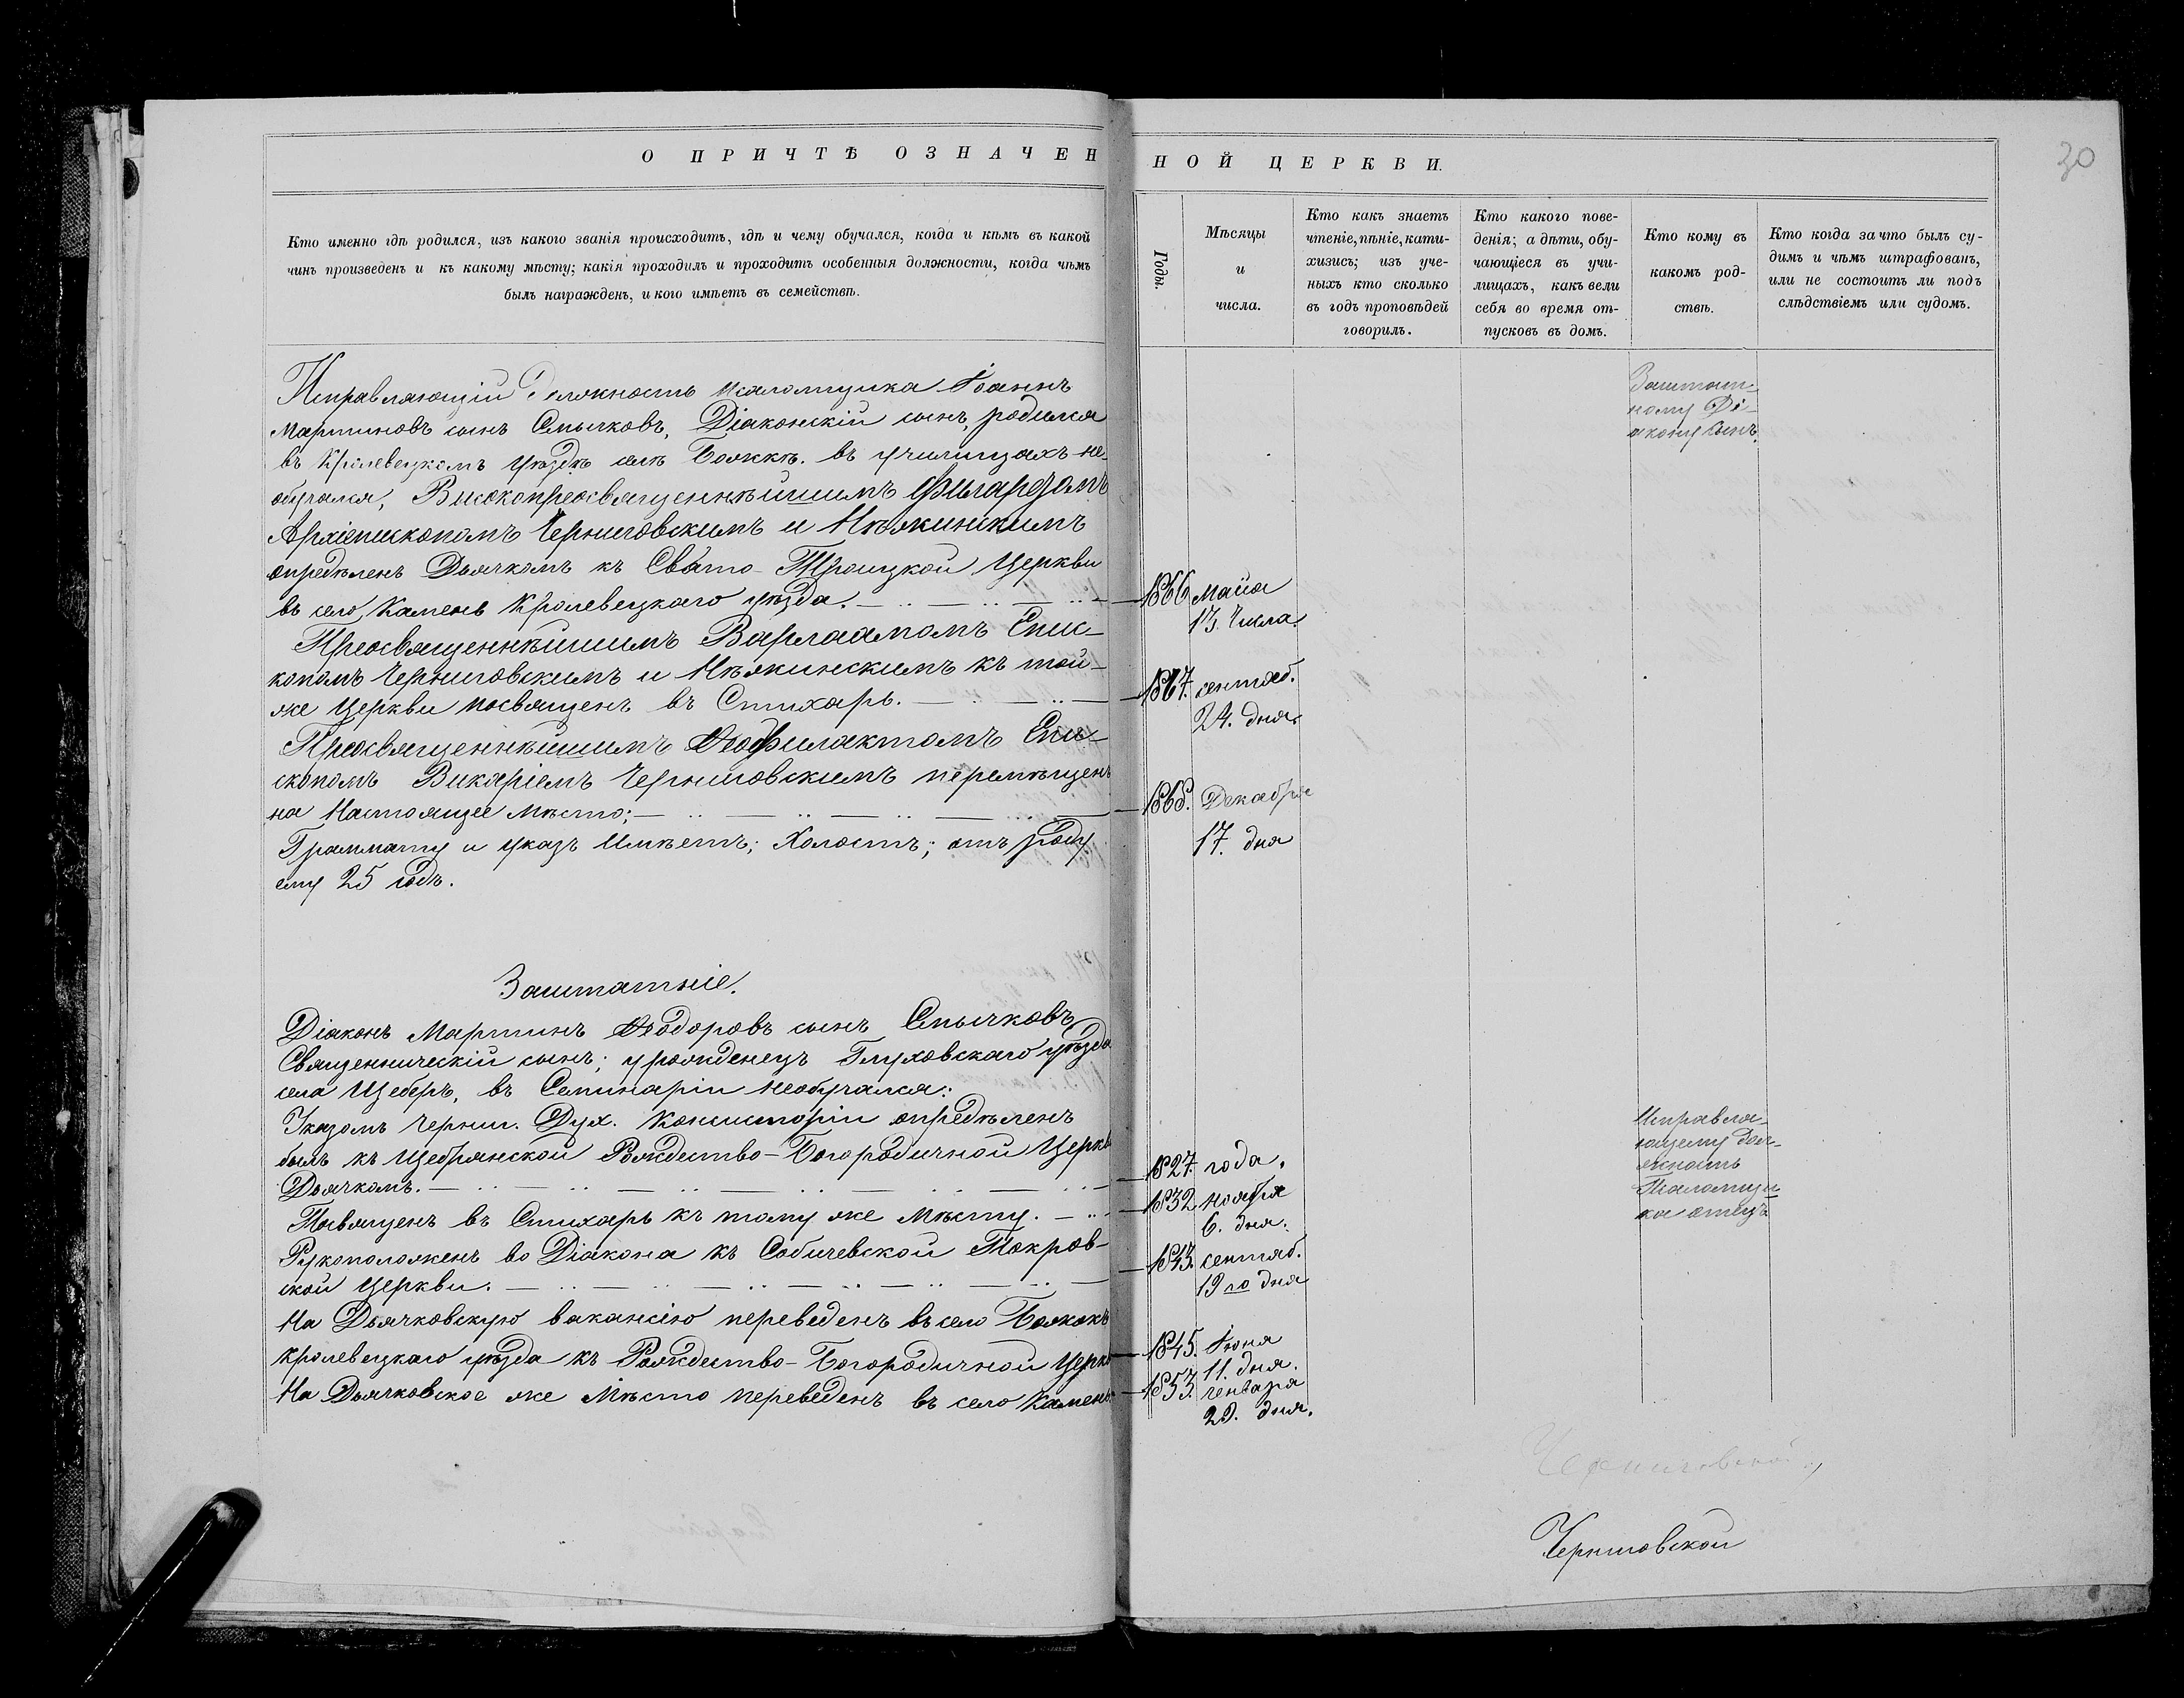 О ПРИЧТѢ ОЗНАЧЕННОЙ ЦЕРКВИ.
30
Кто именно гдѣ родился, изъ какого званія происходитъ, гдѣ и чему обучался, когда и кѣмъ въ какой
чинъ произведенъ и къ какому мѣсту; какія проходилъ и проходитъ особенныя должности, когда чѣмъ
былъ награжденъ, и кого имѣетъ въ семействѣ.
Годы.
Мѣсяцы
и
числа.
Кто какъ знаетъ
чтеніе, пѣніе, кати-
хизисъ; изъ уче-
ныхъ кто сколько
въ годъ проповѣдей
говорилъ.
Кто какого пове-
денія; а дѣти, обу-
чающіеся въ учи-
лищахъ, какъ вели
себя во время от-
пусковъ въ домъ.
Кто кому въ
какомъ род-
ствѣ.
Кто когда за что былъ су-
димъ и чѣмъ штрафованъ,
или не состоитъ ли подъ
слѣдствіемъ или судомъ.
Исправляющій должность псаломщика Іоаннъ
Мартиновъ сынъ Смычковъ, Діаконскій сынъ, родился
въ Кролевецкомъ уѣздѣ селѣ Божккѣ. въ училищахъ не-
обучался, Високопреосвященнѣйшимъ Филаретомъ
Архіепископомъ Черниговскимъ и Нѣжинскимъ
опредѣленъ Дьячкомъ къ Свято-Троицкой Церкви
въ село Камень Кролевецкаго уѣзда.
Преосвященнѣйшимъ Варлаамомъ Епис-
копомъ Черниговскимъ и Нѣжинскимъ къ той-
же Церкви посвященъ въ Стихарь.
Преосвященнѣйшимъ Ѳеофилактомъ Епи-
скопомъ Викаріемъ Черниговскимъ перемѣщенъ
на Настоящее Мѣсто;
Граммату и указъ Имѣетъ; Холостъ; отъ роду
ему 25 годъ.
1866 Маия
13 Числа.
1867. сентяб.
24. дня.
1868. Декабря
17. дня
Заштат-
ному Ді-
акону сынъ.
Заштатніе.
Діаконъ Мартинъ Ѳеодоровъ сынъ Смычковъ,
Священническій сынъ; урожденецъ Глуховскаго уѣзда
села Щебрь, въ Семинаріи необучался:
Указомъ Черниг. Дух. Консисторіи опредѣленъ
былъ къ Щебрянской Рождество-Богородичной Церкв
Дьячкомъ.
Посвященъ въ Стихарь къ тому же Мѣсту.
Рукоположенъ во Діакона къ Собичевской Покров-
ской Церкви.
На Дьячковскую вакансію переведенъ въ село Божокъ
Кролевецкаго уѣзда къ Рождество-Богородичной Церкв
На Дьячковское же Мѣсто переведенъ въ село Камень
1827. года.
1832. ноября
6. дня.
1843. сентяб.
19го дня
1845. Іюня
11. дня.
1853. генваря
29. дня.
Исправля-
ющему дол-
жность
Псаломщи-
ка отецъ
Черниговской
Черниговской